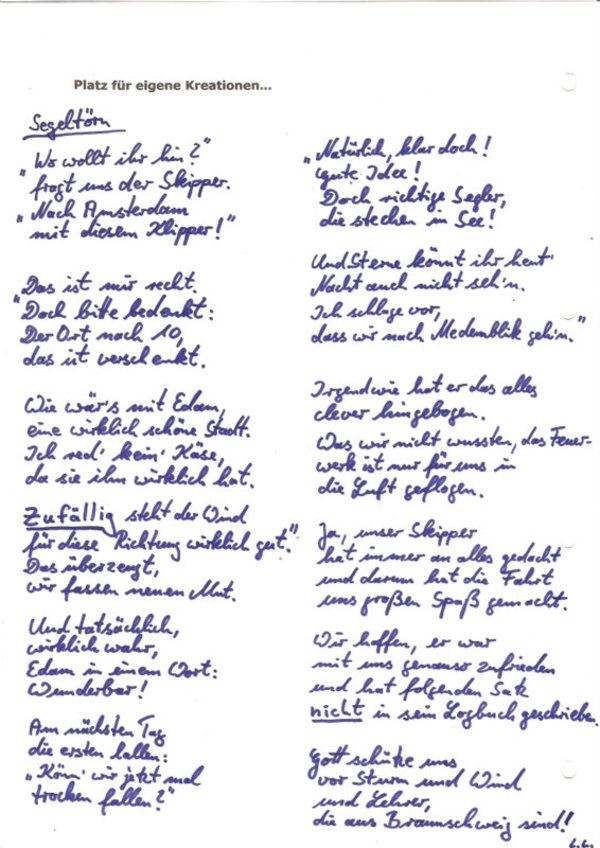 Platz für eigene Kreationen...
Segeltörn
„Wo wollt ihr hin?"
fragt uns der Skipper.
„Nach Amsterdam
mit diesem Klipper!"
„Das ist mir recht.
Doch bitte bedenkt:
Der Ort nach 10,
das ist verschenkt.
Wie wär's mit Edam,
eine wirklich schöne Stadt.
Ich red' kein' Käse,
da sie ihn wirklich hat.
Zufällig steht der Wind
für diese Richtung wirklich gut."
Das überzeugt,
wir fassen neuen Mut.
Und tatsächlich,
wirklich wahr,
Edam in einem Wort:
Wunderbar!
Am nächsten Tag
die ersten lallen:
„Könn' wir jetzt mal
trocken fallen?"
„Natürlich, klar doch!
gute Idee!
Doch richtige Segler,
die stechen in See!
Und Sterne könnt ihr heut'
Nacht auch nicht seh'n.
Ich schlage vor,
dass wir nach Medemblik geh'n."
Irgendwie hat er das alles
clever hingebogen.
Was wir nicht wussten, das Feuer-
werk ist nur für uns in
die Luft geflogen.
Ja, unser Skipper
hat immer an alles gedacht
und darum hat die Fahrt
uns großen Spaß gemacht.
Wir hoffen, er war
mit uns genauso zufrieden
und hat folgenden Satz
nicht in sein Logbuch geschrieben.
Gott schütze uns
vor Sturm und Wind
und Lehrer,
die aus Braunschweig sind!
L.L.